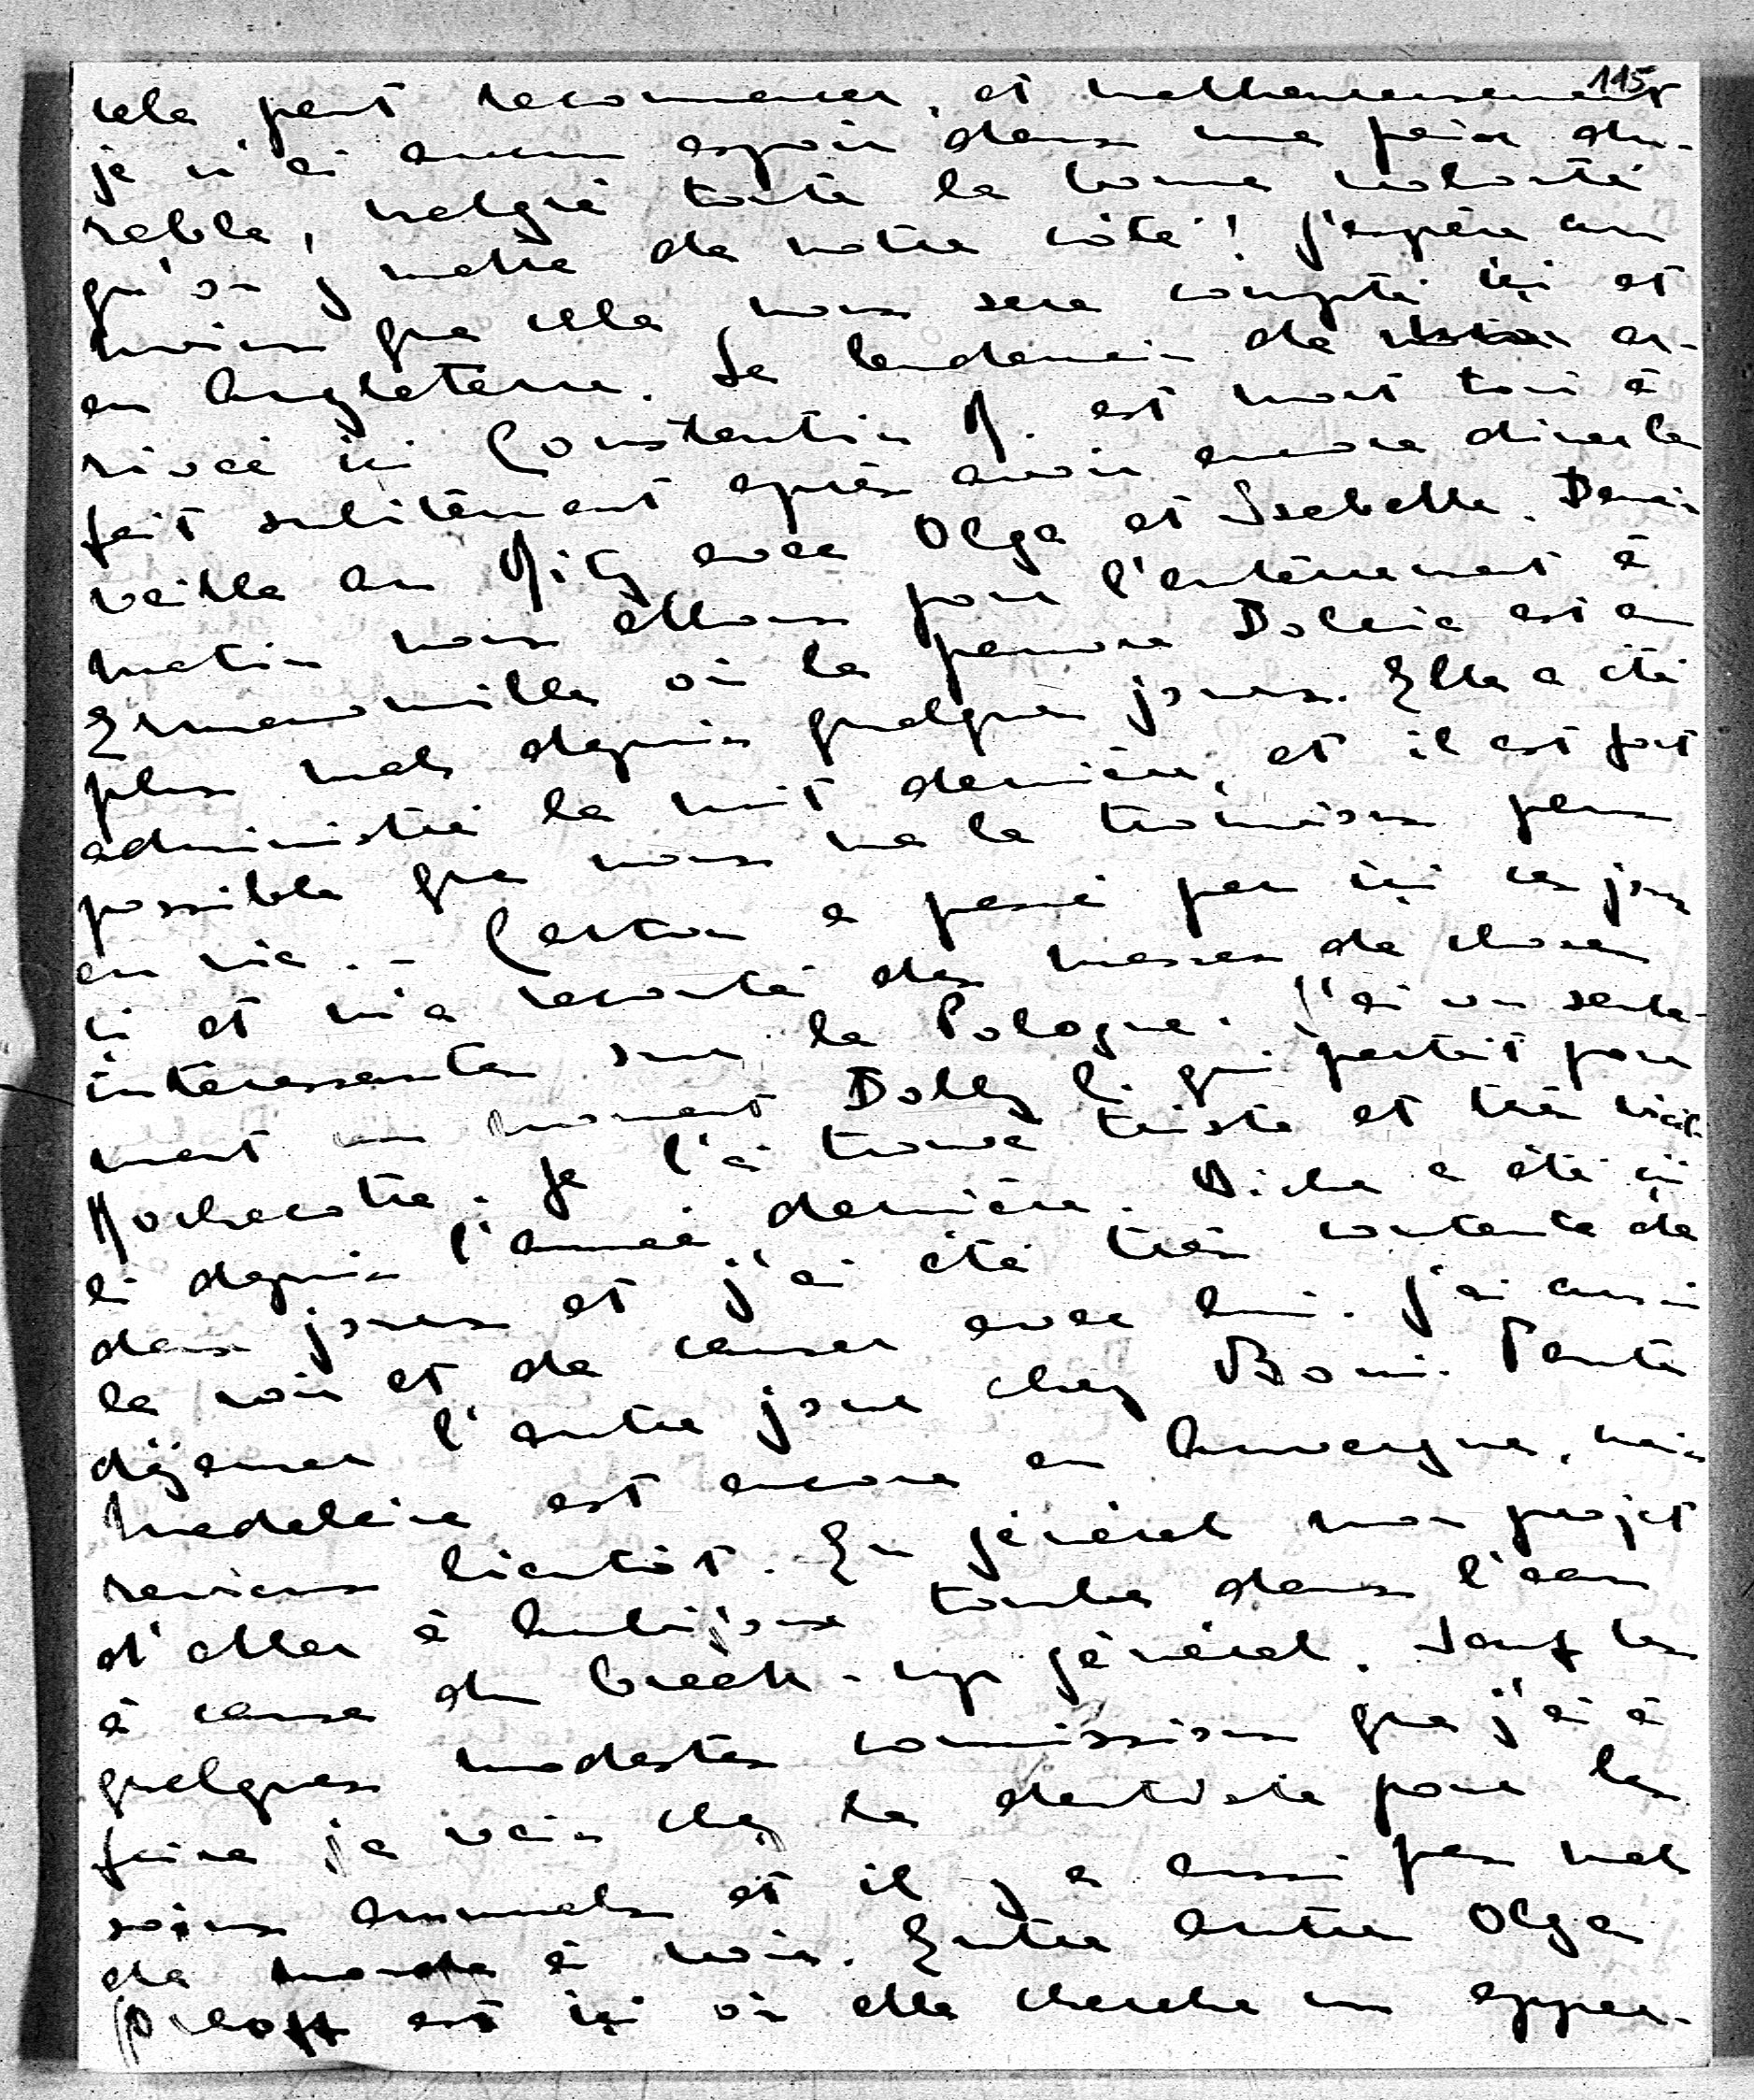 115
cela peut recommencer, et malheureusement
je n'ai aucun espoir dans une paix du-
rable, malgré toute la bonne volonté
qu'on y mette de notre côté! J'espère au
moins que cela nous sera compté ici et
en Angleterre. Le lendemain de mon ar-
rivée ici Constantin R. est mort tout à
fait subitement après avoir encore diner la
veille au Ritz avec Olga et Isabelle. Demain
matin nous allons pour l'enterrement à
Ermenonville où la pauvre Dolcia est au
plus mal depuis quelques jours. Elle a été
administrée la nuit dernière, et il est fort
possible que nous ne la trouvions plus
en vie. - Caston a passé par ici ces jours
ci et m'a raconté des masses de choses
intéressantes sur la Pologne. J'ai vu seule-
ment un moment Dolly R. qui partait pour
Rochecotte. Je l'ai trouvé triste et très vieil-
li depuis l'année dernière. Aiche a été ici
deux jours et j'ai été très contente de
le voir et de causer avec lui. J'ai aussi
déjeuner l'autre jour chez Boni. Tante
Madeleine est encore en Auvergne, mais
reviens bientôt. En général mon projet
d'aller à Aubijoux tombe dans l'eau
à cause du break-up général. Sauf les
quelques modestes commissions que j'ai à
faire je vais chez le dentiste pour les
soins annuels et il y a aussi pas mal
de monde à voir. Entre autre Olga
est ici où elle cherche un appar-